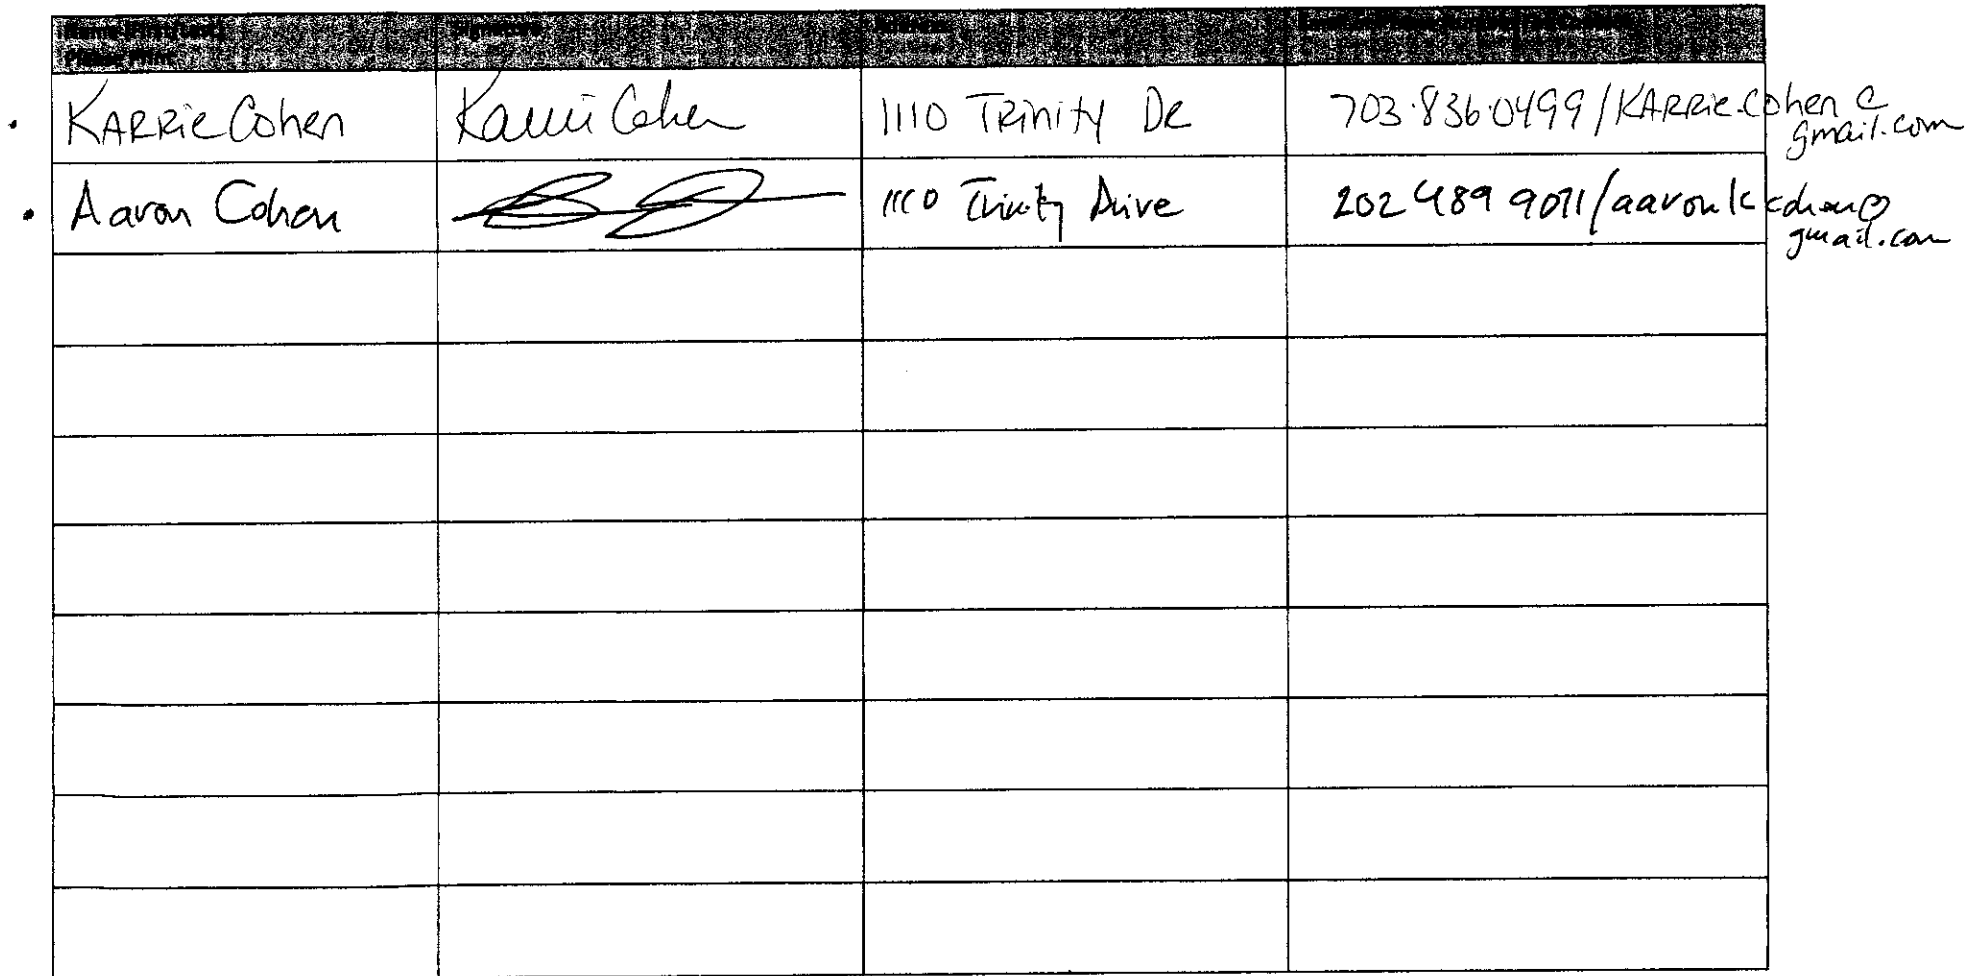 Name (Printed)
Signature
Address
Please Print
KARRiE Cohen
Karrie Cohen
1110 TRiNity DR
703.836.0499/KARRiE.cohen@
gmail.com
Aaron Cohen
1110 Trinity Drive
202 489 9071/aaronkcohen@
gmail.com